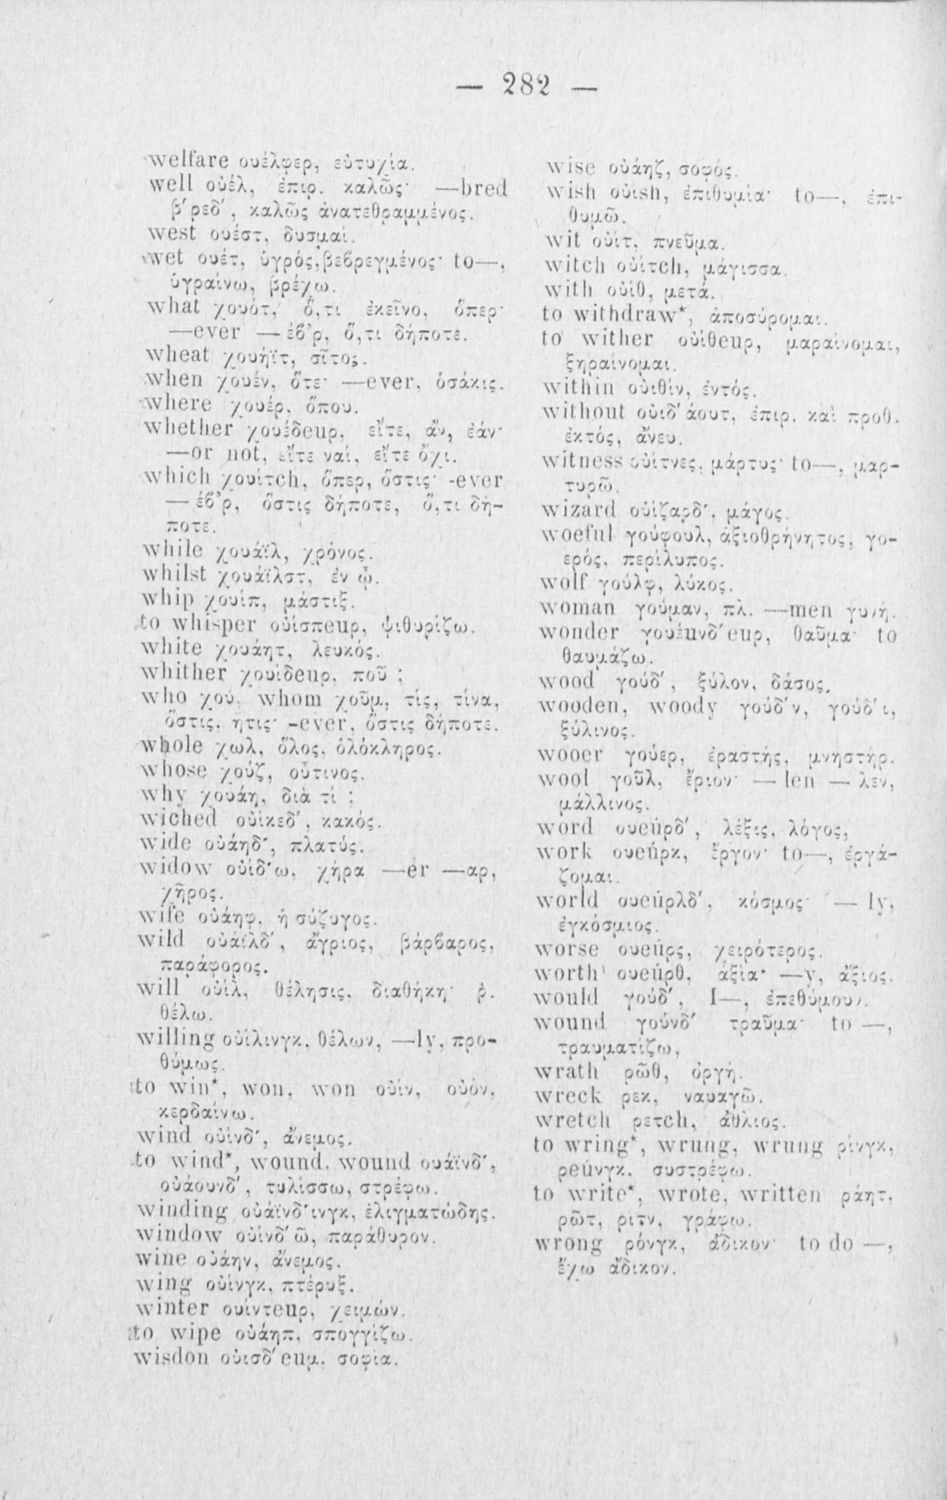 — 282 —
welfare ουέλφερ, εὐτυχία.
well οὐέλ, ἐπιρ. καλῶς· —bred
β'ρεδ', καλῶς ἀνατεθραμμένος.
west ουέστ, δυσμαί.
wet ουέτ, ὑγρός, βεβρεγμένος· to—,
ὑγραίνω, βρέχω.
what χουότ, ὅ,τι ἐκεῖνο, ὅπερ·
—ever —έβ'ρ, ὅ,τι δήποτε.
wheat χουήϊτ, σῖτος.
when χουέν, ὅτε· —ever, ὁσάκις.
where χουέρ, ὅπου.
whether χουέδευρ, εἴτε, ἄν, ἐάν·
—or not, εἴτε ναί, εἴτε ὄχι.
which χουίτch, ὅπερ, ὅστις· -ever
—έβ'ρ, ὅστις δήποτε, ὅ,τι δή-
ποτε.
while χουάϊλ, χρόνος.
whilst χουάϊλστ, ἐν ᾧ.
whip χουίπ, μάστιξ.
to whisper οὐίσπευρ, ψιθυρίζω.
white χουάητ, λευκός.
whither χουίδευρ, ποῦ ;
who χού, whom χοῦμ, τίς, τίνα,
ὅστις, ἥτις· -ever, ὅστις δήποτε.
whole χωλ, ὅλος, ὁλόκληρος.
whose χούζ, οὗτινος.
why χουάη, διὰ τί ;
wiched οὐίκεδ', κακός.
wide οὐάηδ', πλατύς.
widow οὐίδ'ω, χήρα —er —αρ,
χῆρος.
wife οὐάηφ, ἡ σύζυγος.
wild οὐάϊλδ', ἄγριος, βάρβαρος,
παράφορος.
will οὐίλ, θέλησις, διαθήκη· ῥ.
θέλω.
willing οὐίλινγκ, θέλων, —ly, προ-
θύμως.
to win*, won, won οὐίν, οὐόν,
κερδαίνω.
wind οὐίνδ', ἄνεμος.
to wind*, wound, wound ουάϊνδ',
οὐάουνδ', τυλίσσω, στρέφω.
winding οὐάϊνδ'ινγκ, ἑλιγματώδης.
window οὐίνδ'ῶ, παράθυρον.
wine οὐάην, ἄνεμος.
wing οὐίνγκ, πτέρυξ.
winter ουίντευρ, χειμών.
to wipe οὐάηπ, σπογγίζω.
wisdon οὐισδ'ευμ, σοφία.
wise οὐάηζ, σοφός.
wish οὐιsh, ἐπιθυμία· to—, ἐπι-
θυμῶ.
wit οὐίτ, πνεῦμα.
witch οὐίτch, μάγισσα.
with οὐίθ, μετά.
to withdraw*, ἀποσύρομαι.
to wither οὐίθευρ, μαραίνομαι,
ξηραίνομαι.
within οὐιθίν, ἐντός.
without οὐιδ'άουτ, ἐπιρ. καὶ προθ.
ἐκτός, ἄνευ.
witness οὐίτνες, μάρτυς· to—, μαρ-
τυρῶ.
wizard οὐίζαρδ', μάγος.
woeful γούφουλ, ἀξιοθρήνητος, γο-
ερός, περίλυπος.
wolf γούλφ, λύκος.
woman γούμαν, πλ. —men γυνή.
wonder γουέυνδ'ευρ, θαῦμα· to
θαυμάζω.
wood γούδ', ξύλον, δάσος.
wooden, woody γούδ'ν, γούδ'ι,
ξύλινος.
wooer γούερ, ἐραστής, μνηστήρ.
wool γοῦλ, ἔριον· —len —λεν,
μάλλινος.
word ουεύρδ', λέξις, λόγος,
work ουεύρκ, ἔργον· to—, ἐργά-
ζομαι.
world ουεύρλδ', κόσμος· —ly,
ἐγκόσμιος.
worse ουεύρς, χειρότερος.
worth ουεύρθ, ἀξία· —y, ἄξιος.
would γούδ', I—, ἐπεθύμουν.
wound γούνδ' τραῦμα· to —,
τραυματίζω,
wrath ρῶθ, ὀργή.
wreck ρεκ, ναυαγῶ.
wretch ρετch, ἄθλιος.
to wring*, wrung, wrung ρίνγκ,
ρεύνγκ, συστρέφω.
to write*, wrote, written ράητ,
ρῶτ, ριτν, γράφω.
wrong ρόνγκ, ἄδικον· to do —,
ἔχω ἄδικον.